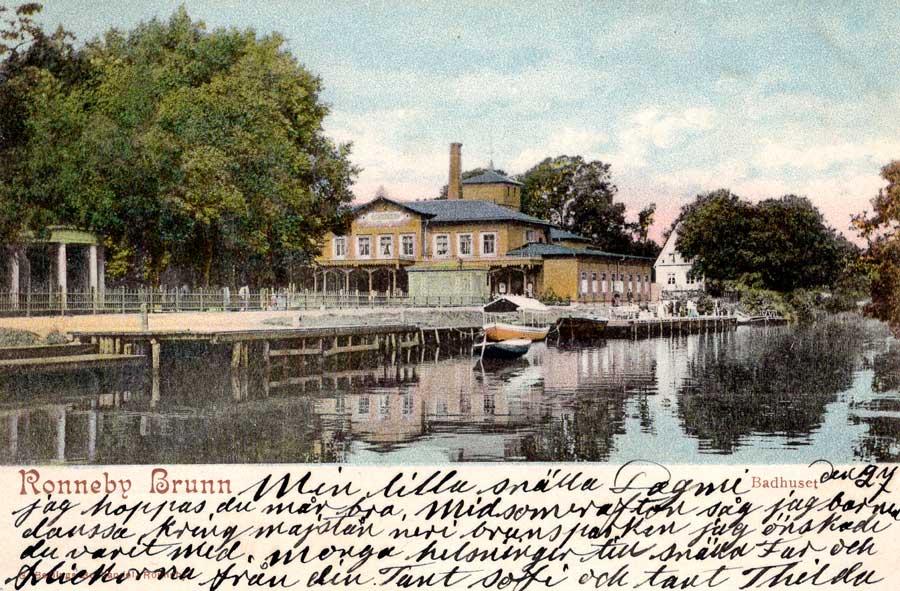 Ronneby Brunn
Badhuset
den 27
Min lilla snälla Dagmi
jag hoppas du mår bra. Midsomerafton såg jag barnen
danssa kring majstån neri brunsparken jag önskade
du varit med. monga helsninger till snälla Far och
från din Tant soffi och tant Thilda